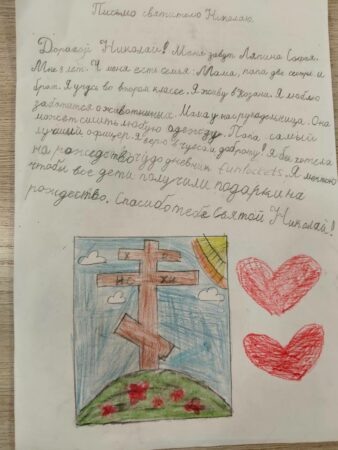 Письмо святителю Николаю.
Дорогой Николай! Меня зовут Ляпина Софья.
Мне 8 лет. У меня есть семья: Мама, папа две сестры и
брат. Я учусь во втором классе. Я живу в Казани. Я люблю
заботится о животнищих. Мама у нас рукодельница. Она
может сшить любую одежду. Папа самый
лучший офицер. Я верю в чудеса и доброту! Я бы хотела
на рождество чудо дневник funlockets. Я мечтаю
чтобы все дети получили подарки на
рождество. Спасибо тебе Святой Николай!
НС ХИ